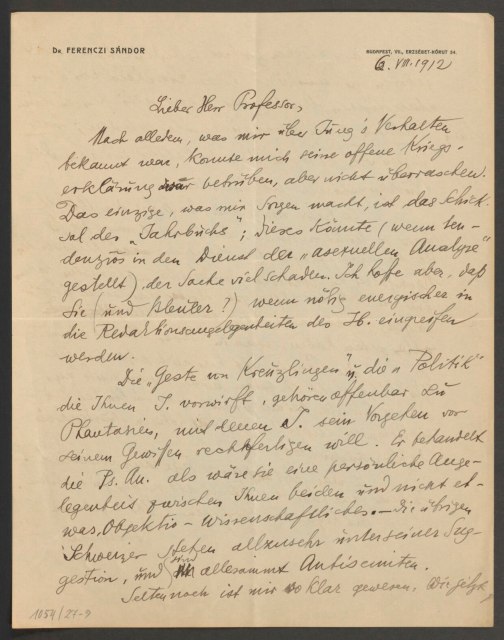 Dr. FERENCZI SÁNDOR
BUDAPEST, VII., ERZSÉBET-KÖRUT 54.
6. VIII. 1912
Lieber Herr Professor,
Nach alledem, was mir über Jung's Verhalten
bekannt war, konnte mich seine offene Kriegs-
erklärung nur betrüben, aber nicht überraschen.
Das einzige, was mir Sorgen macht, ist das Schick-
sal des „Jahrbuchs"; dieses könnte (wenn ten-
denziös in den Dienst der „asexuellen Analyse"
gestellt), der Sache viel schaden. Ich hoffe aber, daß
Sie (und Bleuler?) wenn nötig energischer in
die Redaktionsangelegenheiten des Jb. eingreifen
werden.
Die „Geste von Kreuzlingen" u. die „Politik"
die Ihnen J. vorwirft, gehören offenbar zu
Phantasien, mit denen J. sein Vorgehen vor
seinem Gewissen rechtfertigen will. Er behandelt
die Ps. An. als wäre sie eine persönliche Ange-
legenheit zwischen Ihnen beiden und nicht et-
was Objektiv-Wissenschaftliches. – Die übrigen
Schweizer stehen allzusehr unter seiner Sug-
gestion, und sind allesammt Antisemiten.
Selten noch ist mir so klar gewesen, wie jetzt,
1054/27-9